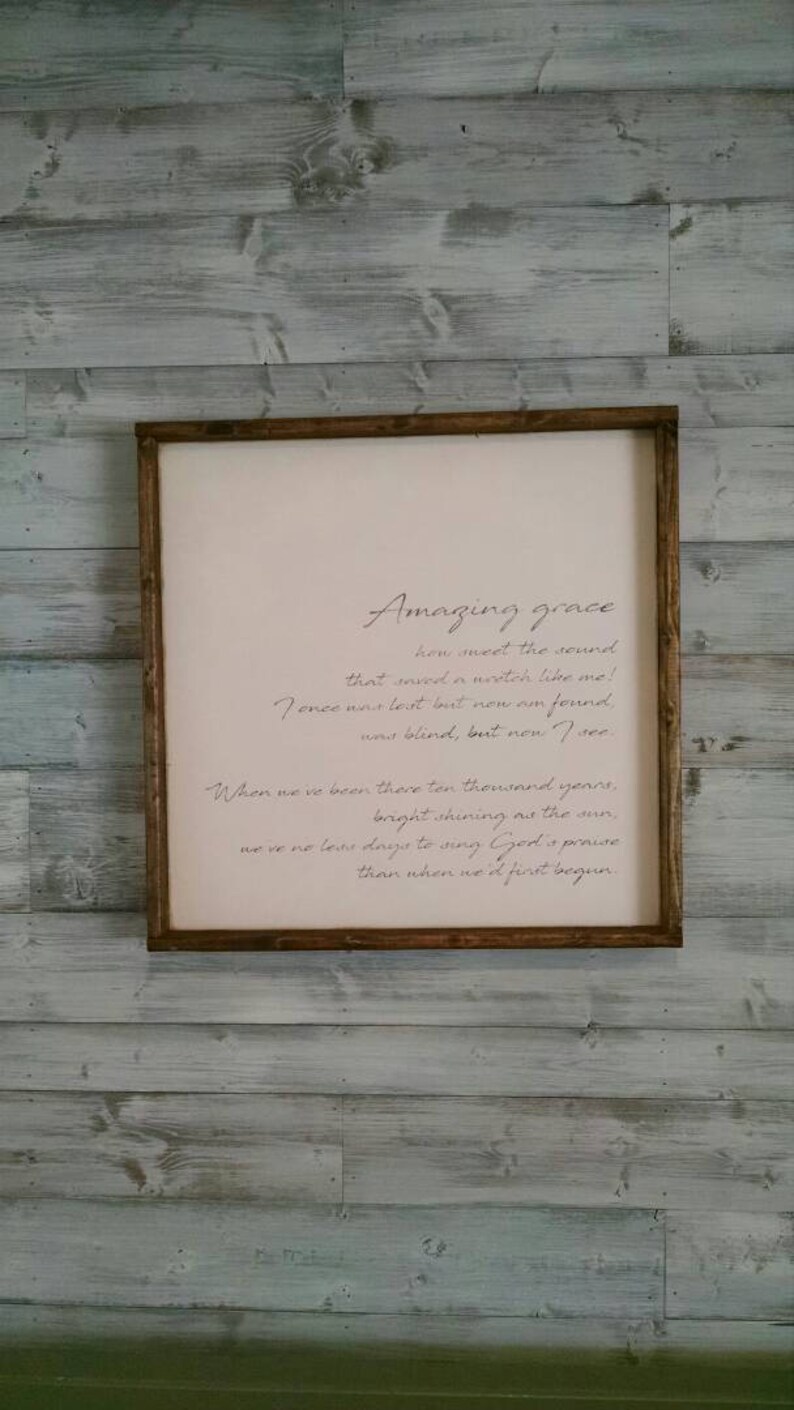 Amazing grace
how sweet the sound
that saved a wretch like me!
I once was lost but now am found,
was blind, but now I see.
When we've been there ten thousand years,
bright shining as the sun,
we've no less days to sing God's praise
than when we'd first begun.